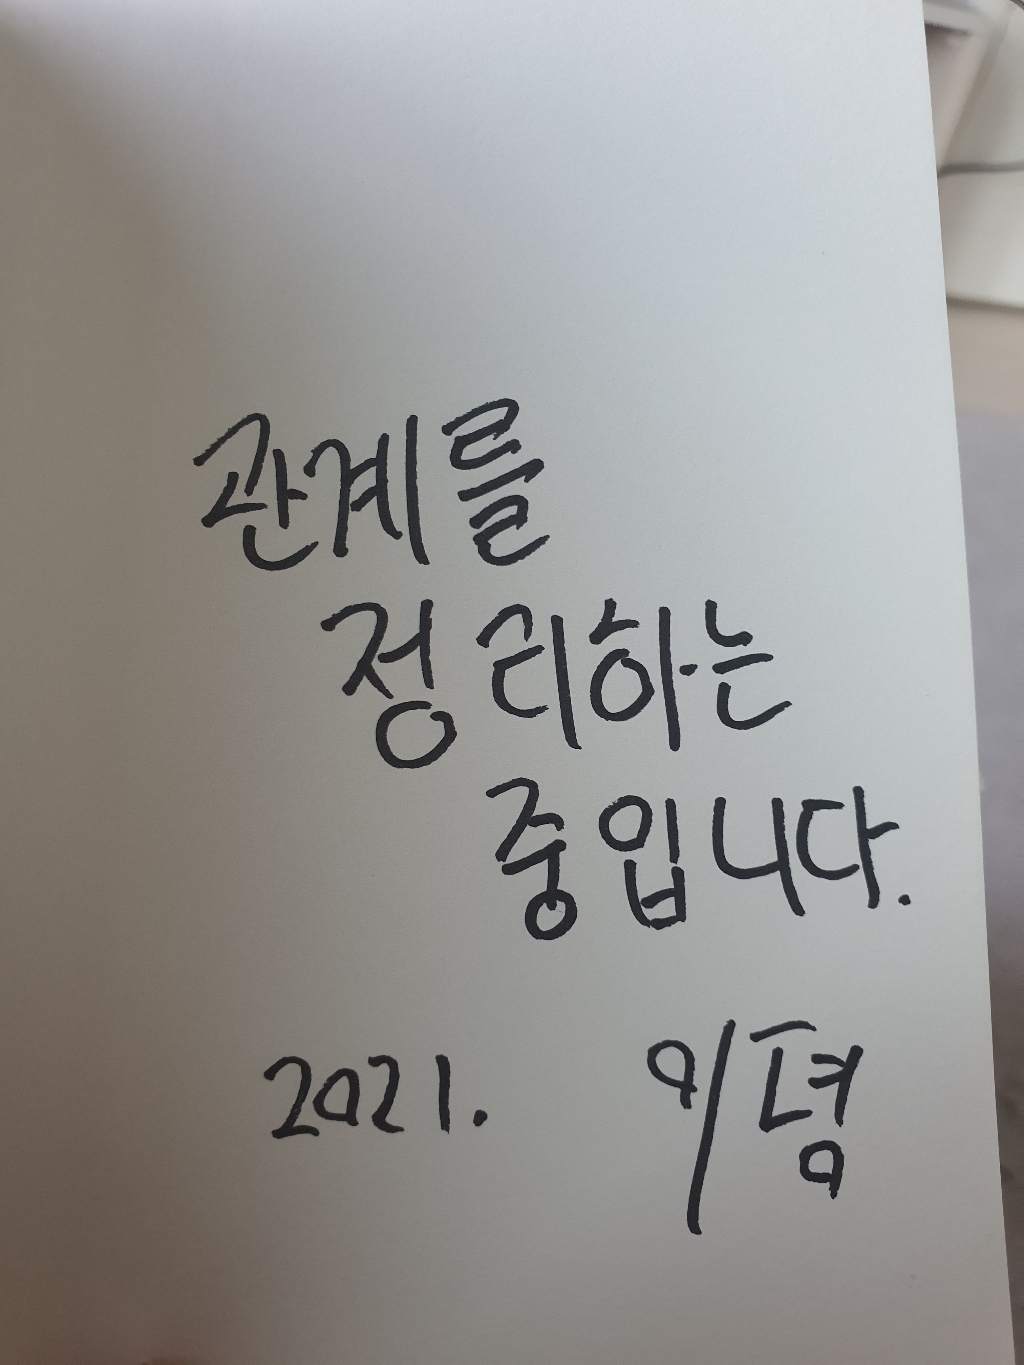 관계를
정리하는
중입니다.
2021. 이평